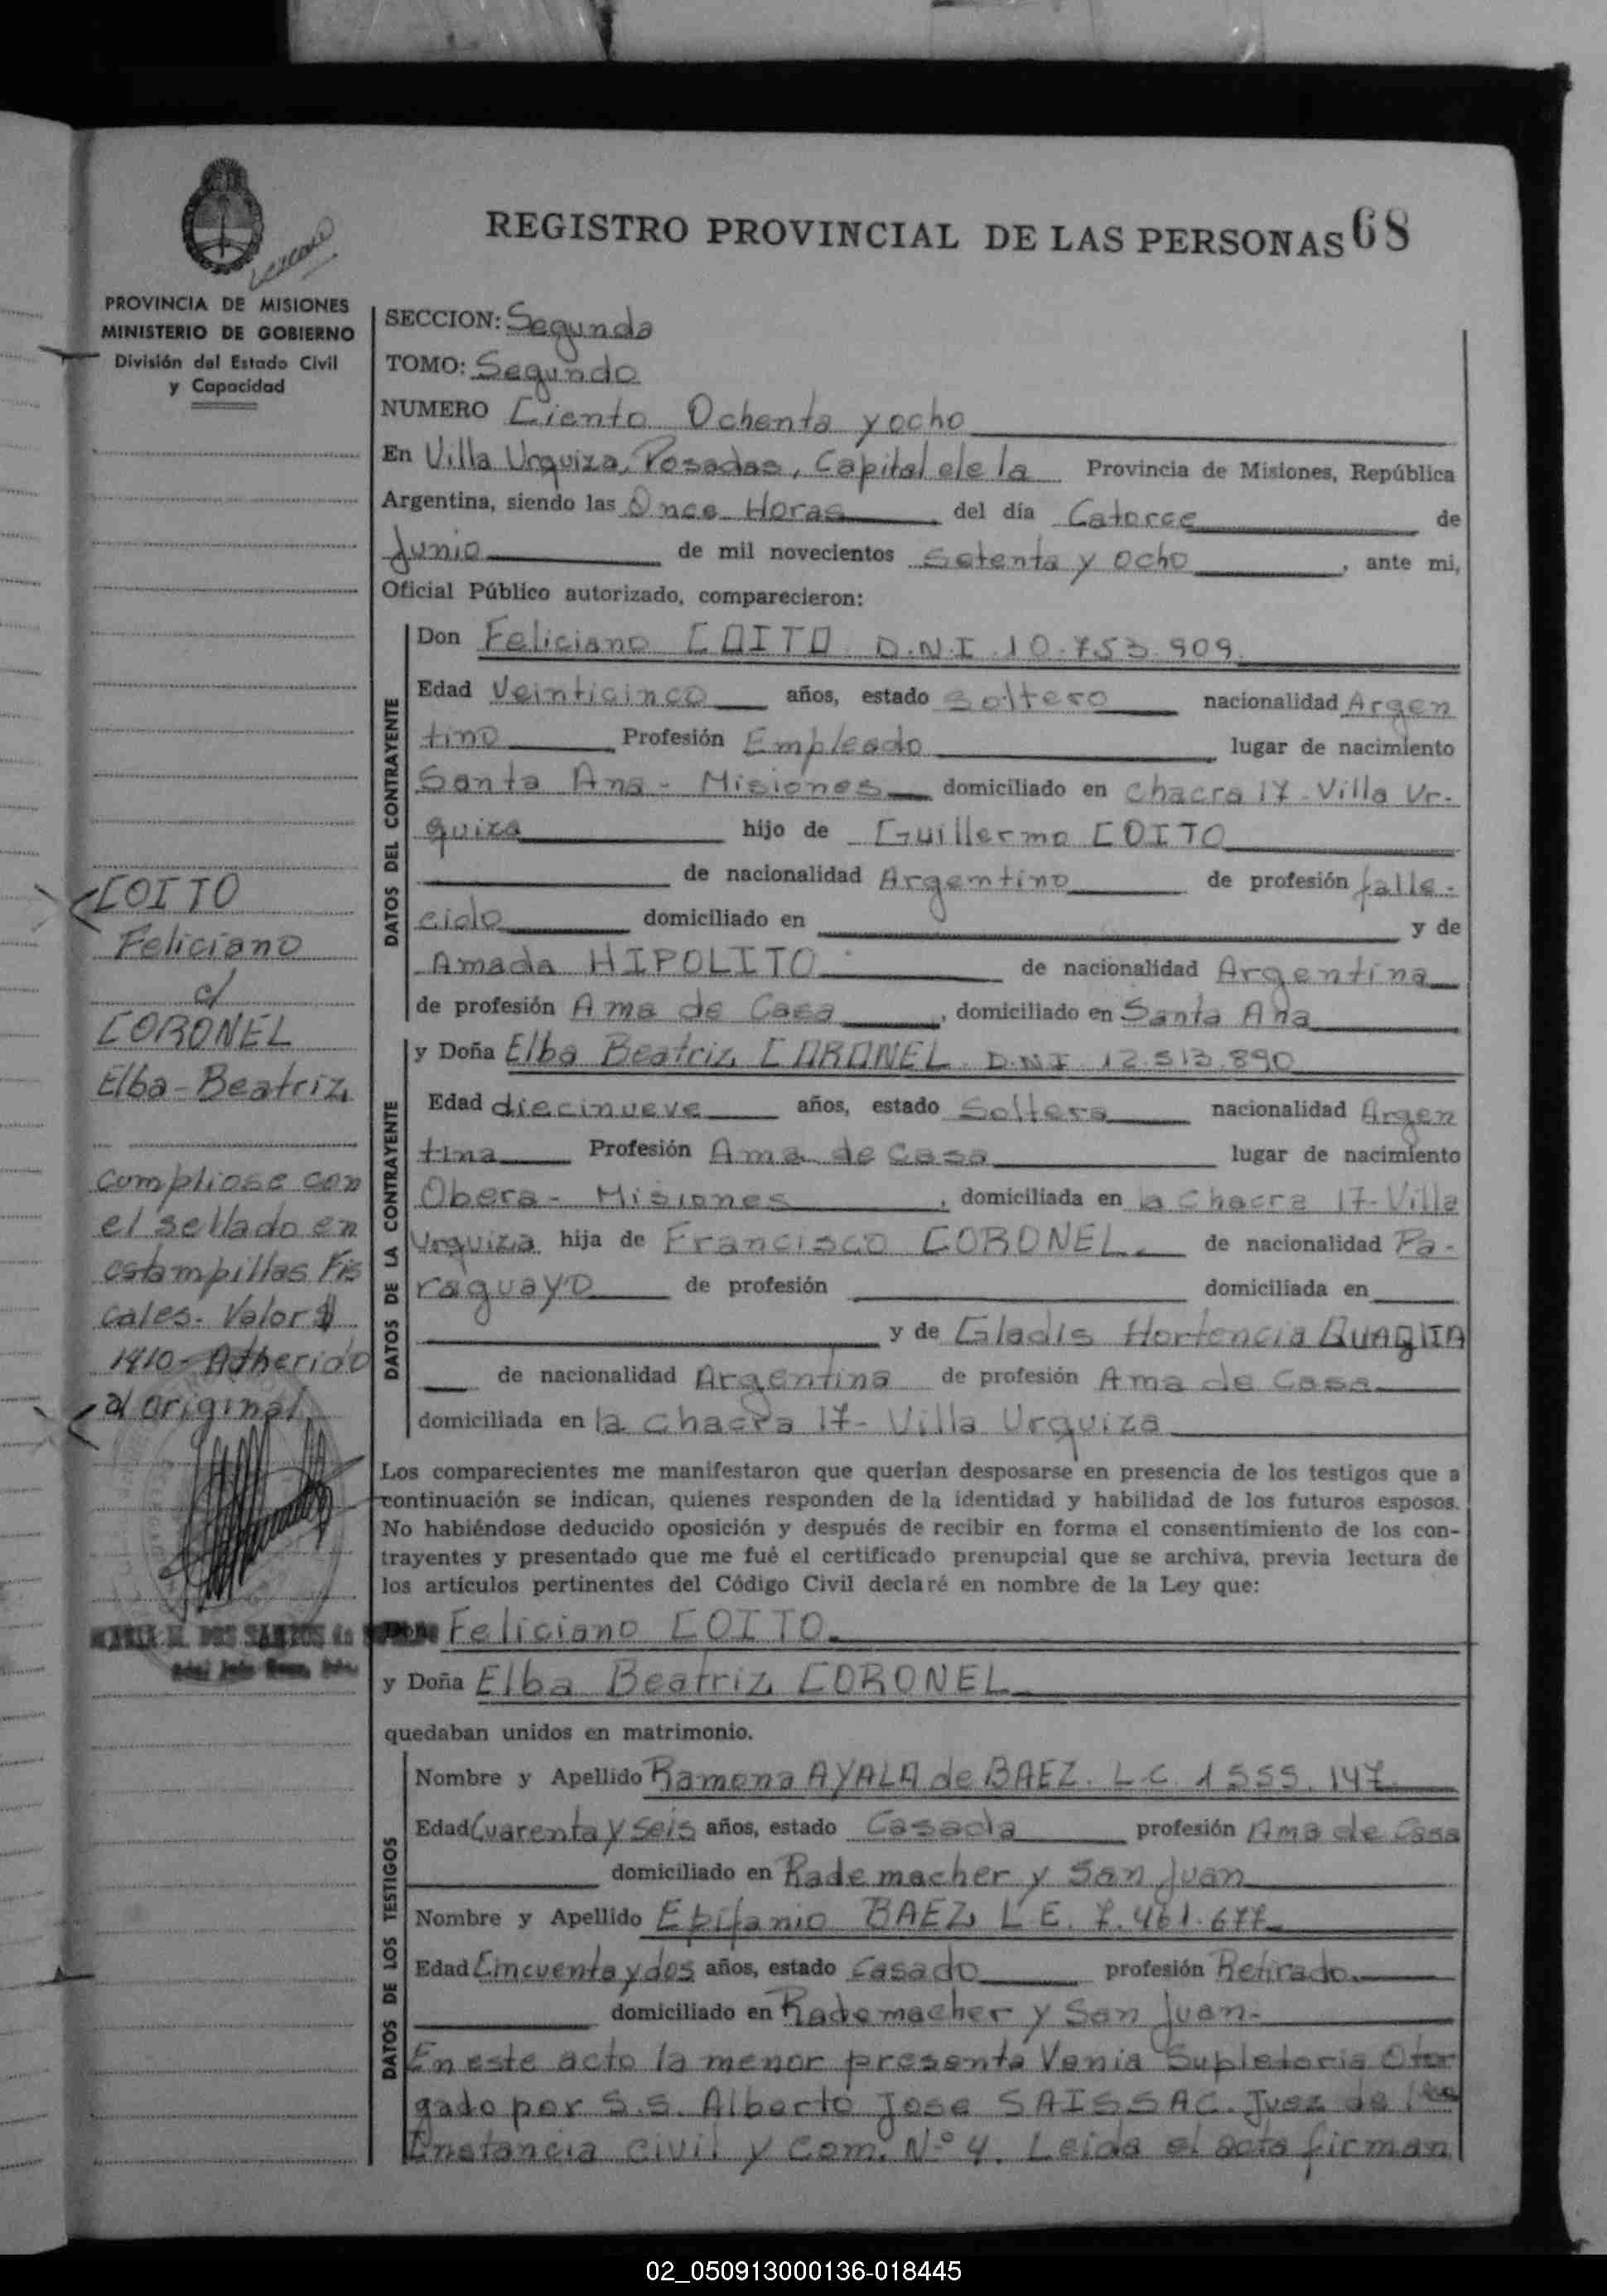 REGISTRO PROVINCIAL DE LAS PERSONAS 68
PROVINCIA DE MISIONES
MINISTERIO DE GOBIERNO
División del Estado Civil
y Capacidad
SECCION: Segunda
TOMO: Segundo
NUMERO Ciento Ochenta y ocho
En Villa Urquiza, Posadas, Capital de la Provincia de Misiones, República
Argentina, siendo las Once Horas del día Catorce de
Junio de mil novecientos Setenta y ocho, ante mi,
Oficial Público autorizado, comparecieron:
DATOS DEL CONTRAYENTE
Don Feliciano COITO D.N.I. 10.753.909
Edad Veinticinco años, estado Soltero nacionalidad Argen
tino Profesión Empleado lugar de nacimiento
Santa Ana - Misiones domiciliado en Chacra 17 - Villa Ur-
quiza hijo de Guillermo COITO
de nacionalidad Argentino de profesión falle-
cido domiciliado en y de
Amada HIPOLITO de nacionalidad Argentina
de profesión Ama de Casa, domiciliado en Santa Ana
DATOS DE LA CONTRAYENTE
y Doña Elba Beatriz CORONEL D.N.I 12.513.890
Edad diecinueve años, estado Soltera nacionalidad Argen
tina Profesión Ama de Casa lugar de nacimiento
Obera - Misiones, domiciliada en la Chacra 17 - Villa
Urquiza hija de Francisco CORONEL de nacionalidad Pa-
raguayo de profesión domiciliada en
y de Gladis Hortencia QUAQLIA
de nacionalidad Argentina de profesión Ama de Casa
domiciliada en la Chacra 17 - Villa Urquiza
Los comparecientes me manifestaron que querían desposarse en presencia de los testigos que a
continuación se indican, quienes responden de la identidad y habilidad de los futuros esposos.
No habiéndose deducido oposición y después de recibir en forma el consentimiento de los con-
trayentes y presentado que me fué el certificado prenupcial que se archiva, previa lectura de
los artículos pertinentes del Código Civil declaré en nombre de la Ley que:
Feliciano COITO
y Doña Elba Beatriz CORONEL
quedaban unidos en matrimonio.
DATOS DE LOS TESTIGOS
Nombre y Apellido Ramona AYALA de BAEZ. L.C. 1555.147
Edad Cuarenta y Seis años, estado Casada profesión Ama de Casa
domiciliado en Rademacher y San Juan
Nombre y Apellido Epifanio BAEZ L.E. 7.461.677
Edad Cincuenta y dos años, estado Casado profesión Retirado
domiciliado en Rademacher y San Juan-
En este acto la menor presenta Venia Supletoria Otor
gado por S.S. Alberto Jose SAISSAC. Juez de 1ra
Instancia Civil y Com. Nº 4. Leida el acta firman
COITO
Feliciano
c/
CORONEL
Elba-Beatriz
Compliose con
el sellado en
estampillas Fis
cales. Valor $
1410- Adherido
al original
MARIA M. DOS SANTOS de
02_050913000136-018445